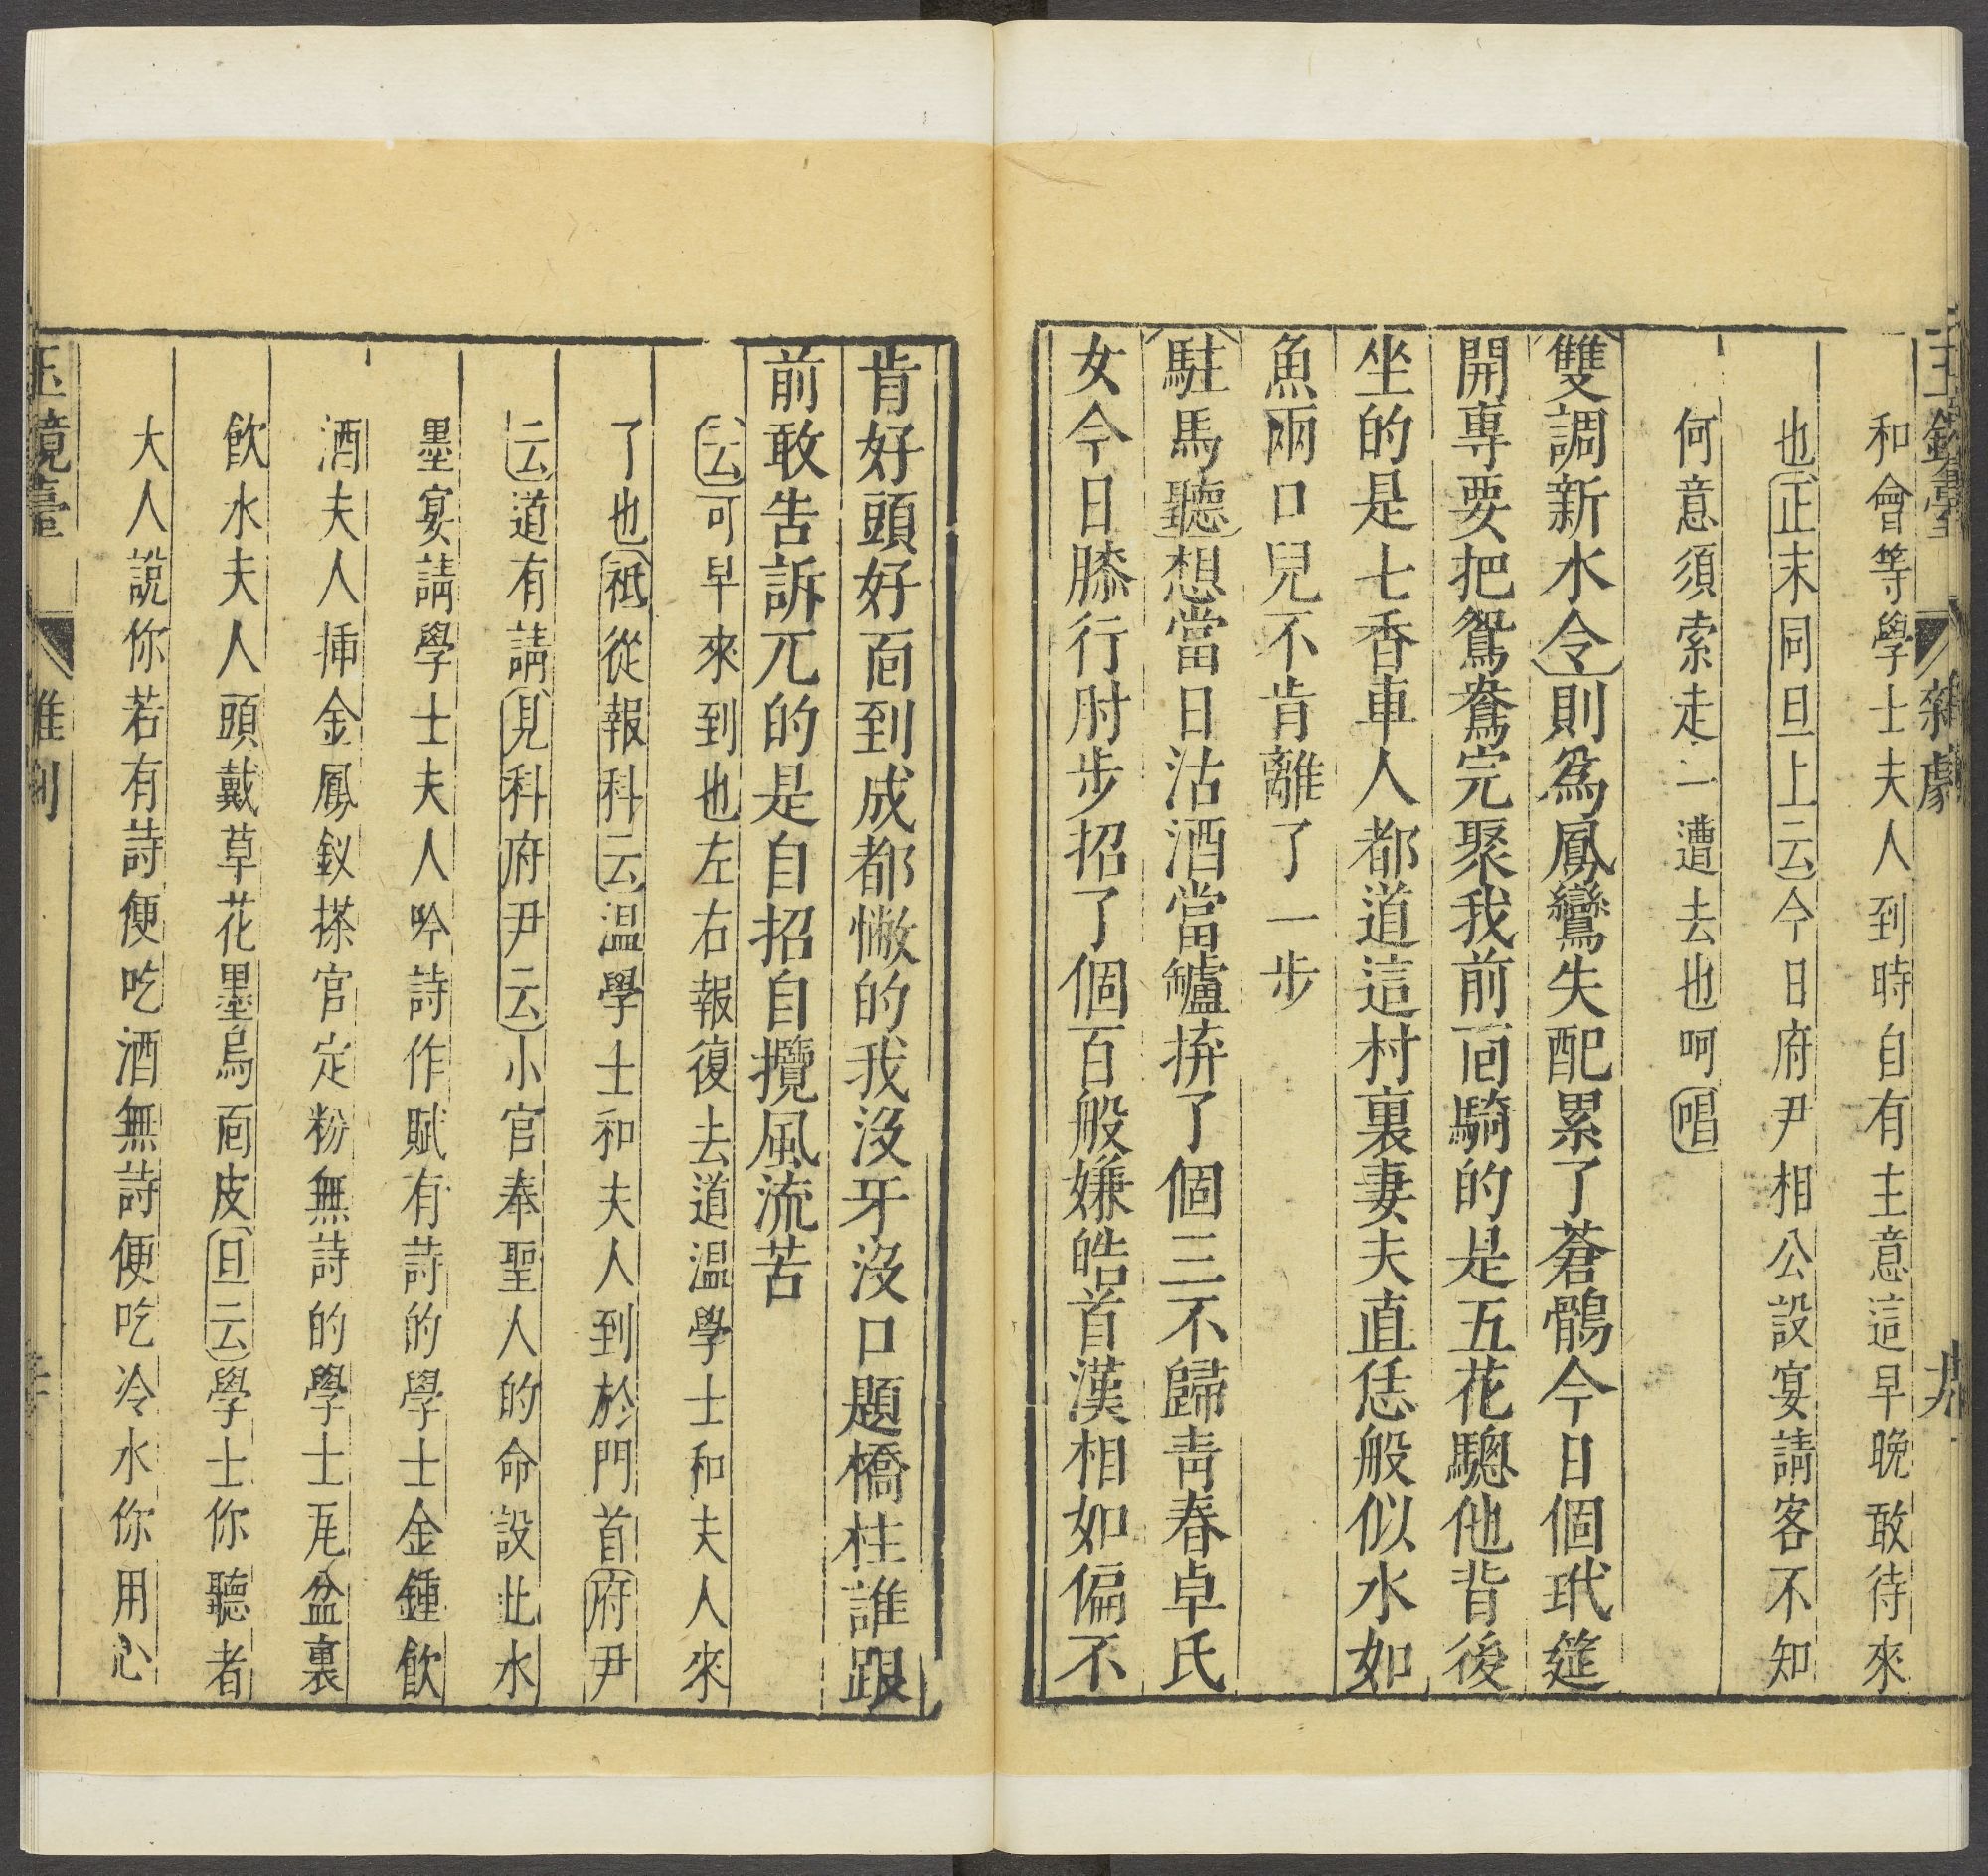 玉鏡臺 雜劇 九
和會等學士夫人到時自有主意這早晚敢待來
也正末同旦上云今日府尹相公設宴請客不知
何意須索走一遭去也呵唱
雙調新水令則為鳳鸞失配累了蒼鶻今日個玳筵
開專要把鴛鴦完聚我前面騎的是五花驄他背後
坐的是七香車人都道這村裏妻夫直恁般似水如
魚兩口兒不肯離了一步
駐馬聽想當日沽酒當罏拚了個三不歸青春卓氏
女今日膝行肘步招了個百般嫌皓首漢相如偏不
肯好頭好面到成都懒的我沒牙沒口題橋柱誰跟
前敢告訴兀的是自招自攬風流苦
云可早來到也左右報復去道温學士和夫人來
了也祗從報科云温學士和夫人到於門首府尹
云道有請見科府尹云小官奉聖人的命設此水
墨宴請學士夫人吟詩作賦有詩的學士金鍾飲
酒夫人揷金鳳釵搽官定粉無詩的學士瓦盆裏
飲水夫人頭戴草花墨烏面皮旦云學士你聽者
大人說你若有詩便吃酒無詩便吃冷水你用心
玉鏡臺